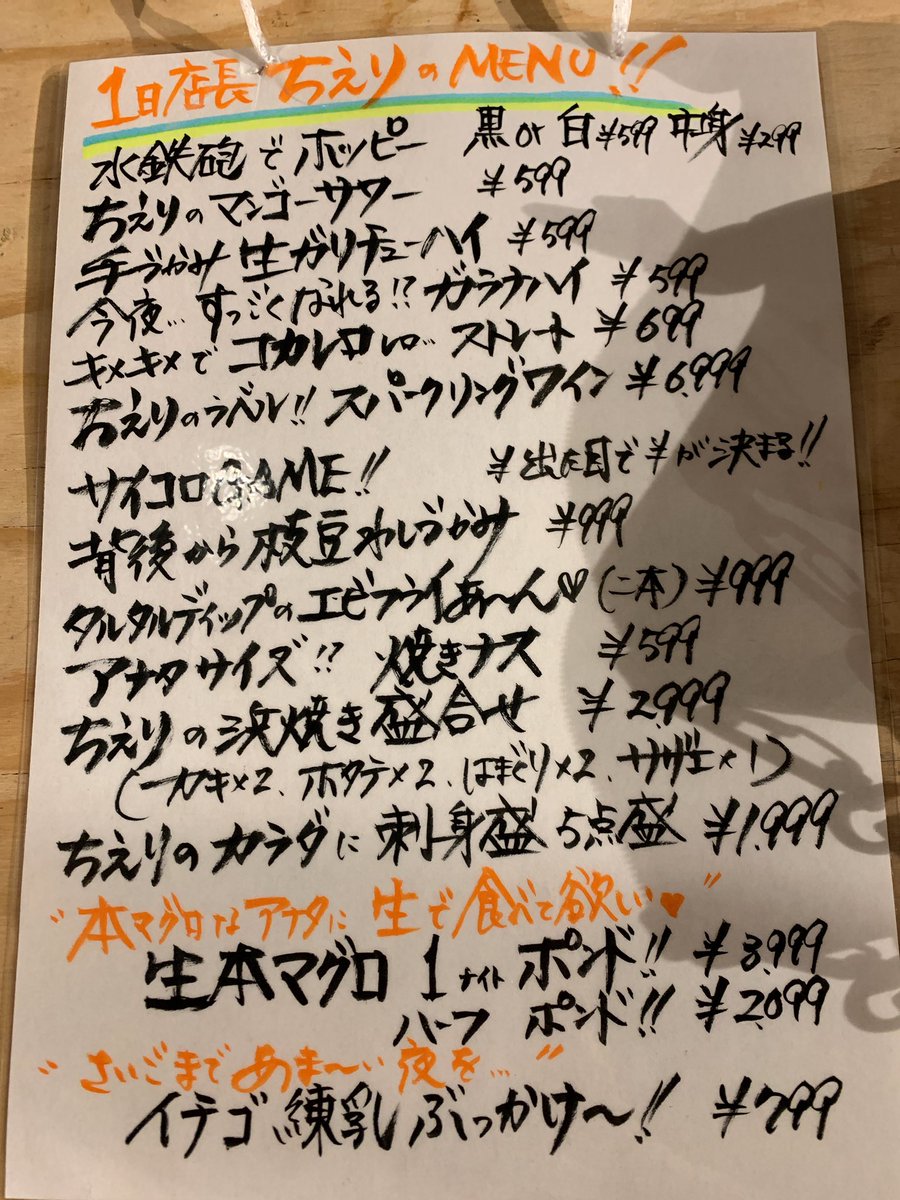 1日店長 ちえりのMENU!!
水鉄砲でホッピー 黒or白¥599 中身¥299
ちえりのマンゴーサワー ¥599
手づかみ生ガリチューハイ ¥599
今夜…すっごくなれる!?ガラナハイ ¥599
キメキメでコカレロレロ… ストレート ¥699
ちえりのラベル!!スパークリングワイン ¥6,999
サイコロGAME!! ¥出た目で¥が決まる!!
背後から枝豆わしづかみ ¥999
タルタルディップのエビフライあ〜ん♡(二本)¥999
アナタサイズ!? 焼きナス ¥599
ちえりの浜焼き盛合せ ¥2999
(カキ×2、ホタテ×2、はまぐり×2、サザエ×1)
ちえりのカラダに刺身盛5点盛 ¥1,999
"本マグロなアナタに生で食べて欲しい♥"
生本マグロ1ナイトポンド!! ¥3,999
ハーフ ポンド!! ¥2,099
"さいごまであま〜い夜を…"
イチゴ練乳ぶっかけ〜!! ¥799